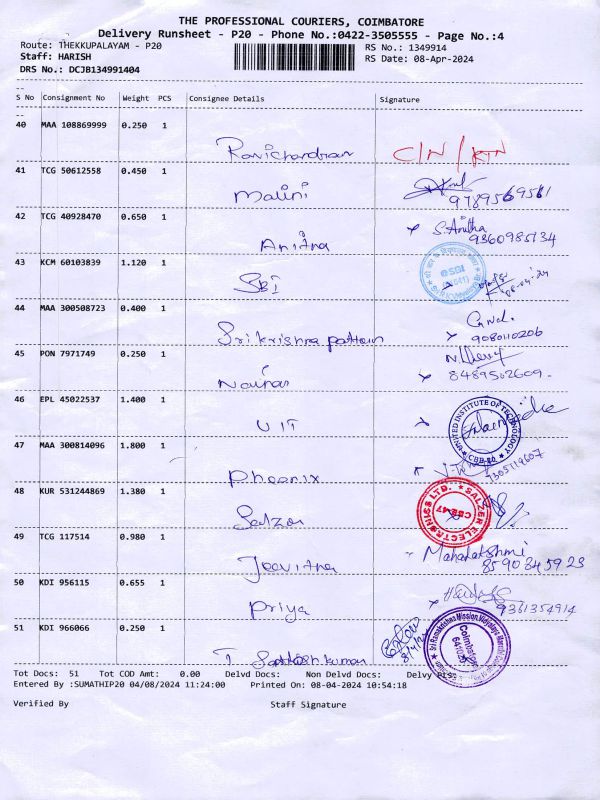 THE PROFESSIONAL COURIERS, COIMBATORE
Delivery Runsheet - P20 - Phone No.:0422-3505555 - Page No.:4
Route: THEKKUPALAYAM - P20
RS No.: 1349914
Staff: HARISH
RS Date: 08-Apr-2024
DRS No.: DCJB134991404
S No Consignment No Weight PCS Consignee Details Signature
40 MAA 108869999 0.250 1
Ravichandran C/N /
41 TCG 50612558 0.450 1
Malini 9789569561
42 TCG 40928470 0.650 1
Anitha S. Anitha
9360985134
43 KCM 60103839 1.120 1
SBI
44 MAA 300508723 0.400 1
Srikrishna 9080110206
45 PON 7971749 0.250 1
8489502609
46 EPL 45022537 1.400 1
UIT UNITED INSTITUTE OF TECHNOLOGY
47 MAA 300814096 1.800 1
Pheonix 7305119607
48 KUR 531244869 1.380 1
Salzer SALZER ELECTRONICS LTD. CBE-47
49 TCG 117514 0.980 1
Jeevitha Mahalakshmi
8590345923
50 KDI 956115 0.655 1
Priya 9361354914
51 KDI 966066 0.250 1
T. kumar Coimbatore
Tot Docs: 51 Tot COD Amt: 0.00 Delvd Docs: Non Delvd Docs: Delvy Pts:
Entered By :SUMATHIP20 04/08/2024 11:24:00 Printed On: 08-04-2024 10:54:18
Verified By Staff Signature